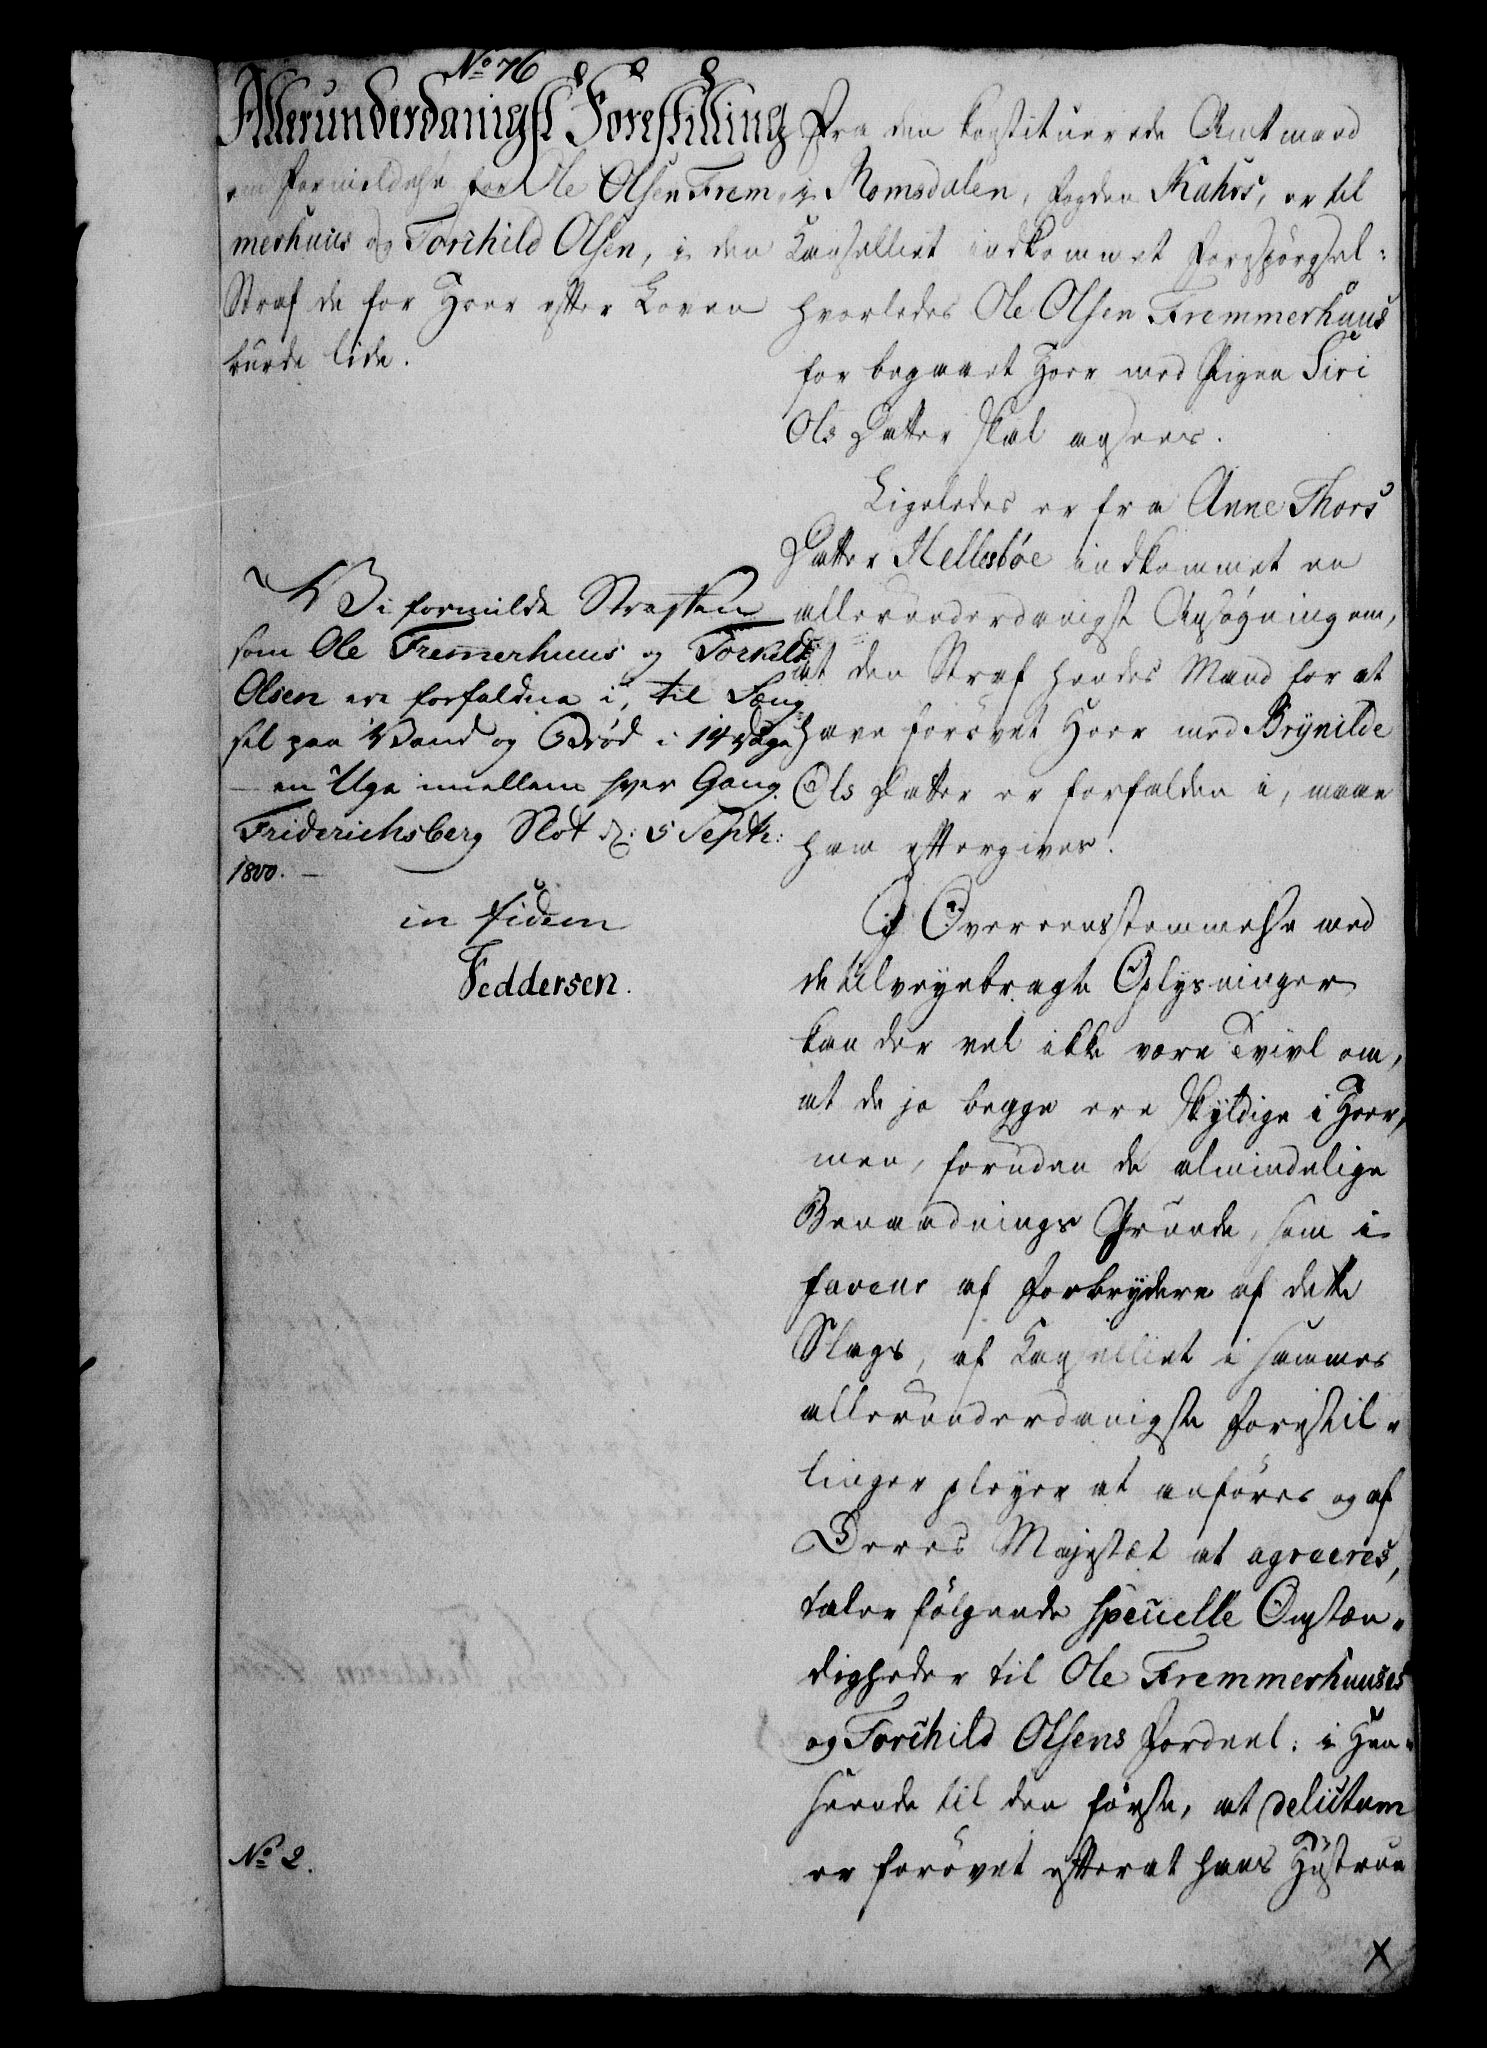 No 76
Allerunderdanigst Forestilling
om Formildelse for Ole Olsen Frem-
merhuus og Torchild Olsen, i den
Straf de for Hoer efter Loven
burde lide.
Vi formilde Straffen
som Ole Fremerhuus og Torkild
Olsen ere forfaldne i, til Fæng-
sel paa Vand og Brød i 14 Dage
en Uge imellem hver Gang.
Friderichsberg Slot d: 5 Septbr:
1800. —
in fidem
Feddersen.
No 2.
Fra den constituerede Amtmand
i Romsdalen, Fogden Kahrs, er til
Cancelliet indkommet Forespørgsel:
hvorledes Ole Olsen Fremmerhuus
for begaaet Hoer med Pigen Siri
Ols Datter skal ansees.
Ligeledes er fra Anne Thors
Datter Hellesbøe indkommet en
allerunderdanigst Ansøgning om,
at den Straf hendes Mand for at
have forøvet Hoer med Brynilde
Ols Datter er forfalden i, maae
ham eftergives.
I Overeensstemmelse med
de tilveyebragte Oplysninger
kan der vel ikke være Tvivl om,
at de jo begge ere skyldige i Hoer,
men, foruden de almindelige
Benaadnings Grunde, som i
faveur af Forbrydere af dette
Slags, af Cancelliet i sammes
allerunderdanigste Forestil-
linger pleyer at anføres og af
Deres Majestæt at agreeres,
taler følgende specielle Omstæn-
digheder til Ole Fremmerhuuses
og Torchild Olsens Fordeel: i Hen-
seende til den første, at delictum
er forøvet efterat hans Hustrue
X